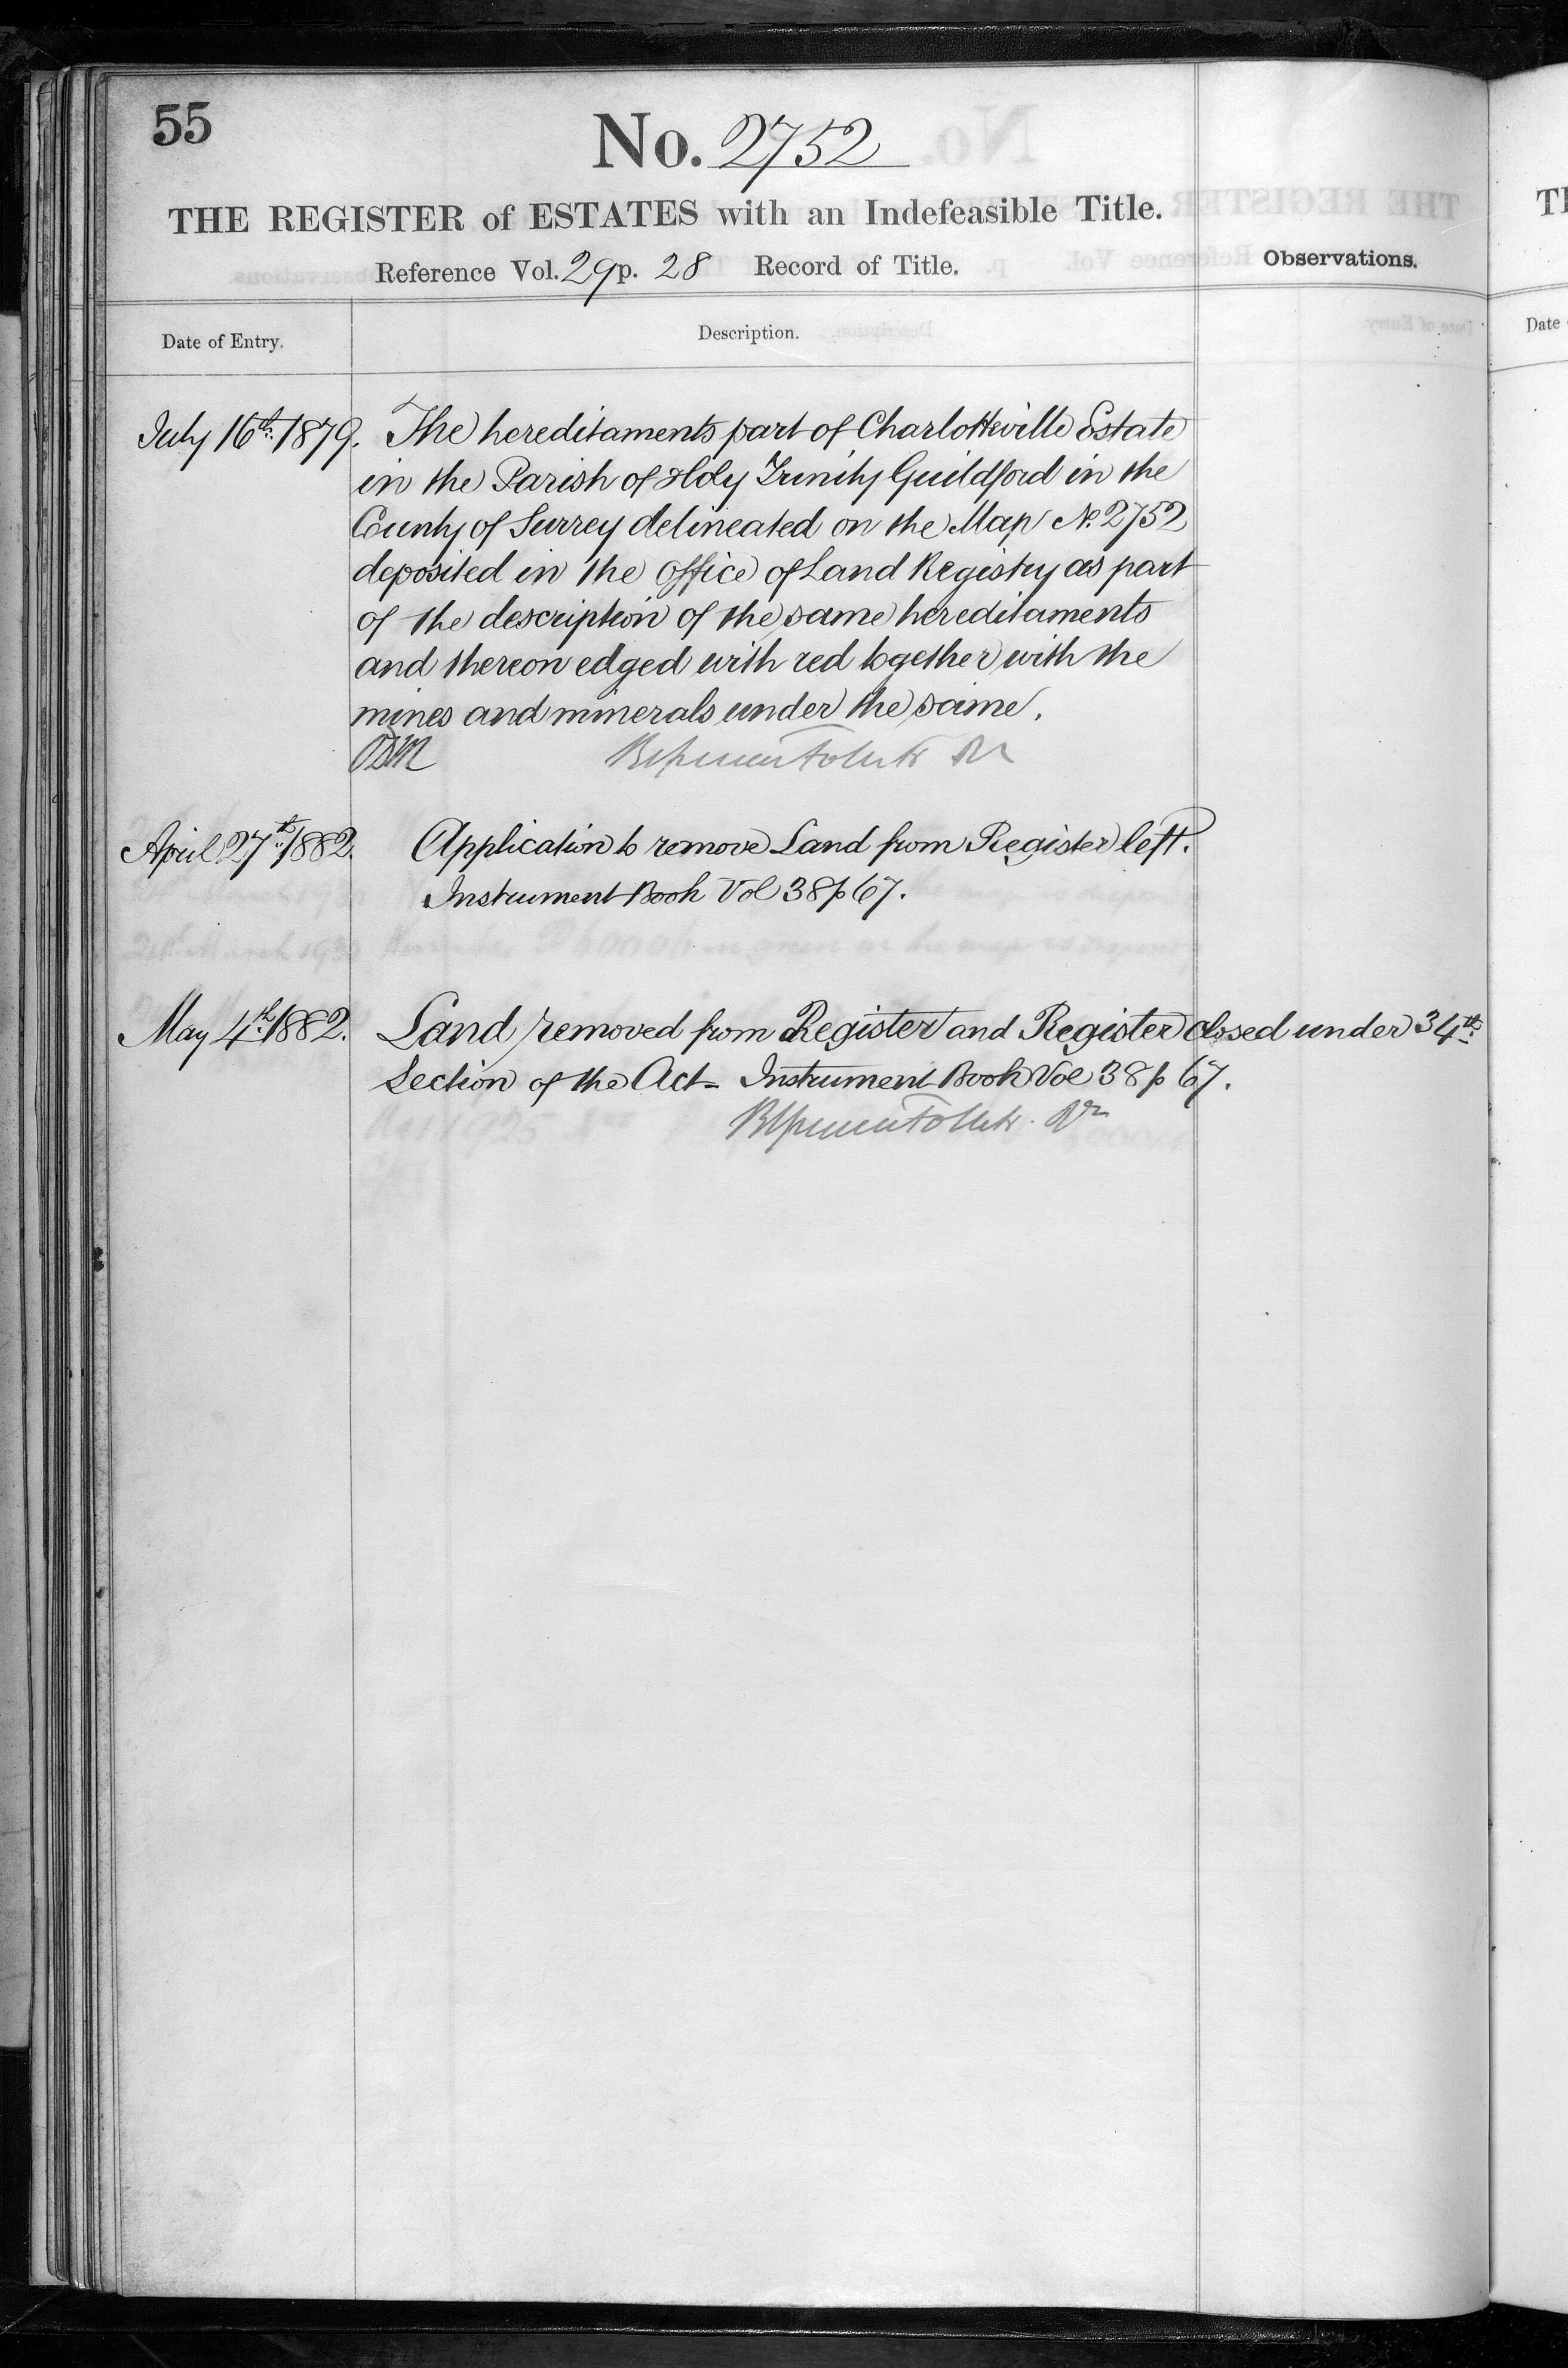 55
No. 2752
THE REGISTER of ESTATES with an Indefeasible Title.
Reference Vol. 29 p. 28 Record of Title.
Observations.
Date of Entry.
Description.
Date
July 16th. 1879. The hereditaments part of Charlotteville Estate
in the Parish of Holy Trinity Guildford in the
County of Surrey delineated on the Map No. 2752
deposited in the office of Land Registry as part
of the description of the same hereditaments
and thereon edged with red together with the
mines and minerals under the same.
April 27th. 1882. Application to remove Land from Register left.
Instrument Book Vol 38 p 67.
May 4th. 1882. Land removed from Register and Register closed under 34th.
Section of the Act - Instrument Book Vol 38 p 67.